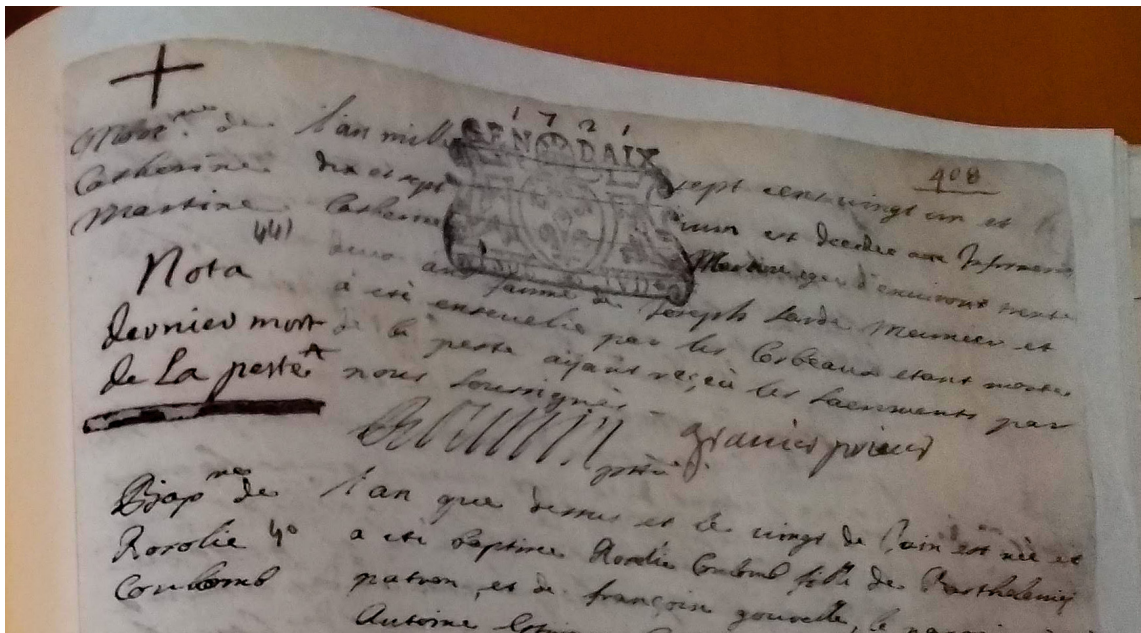 1721
GEN DAIX
408
Mort.re de
Catherine
Martine
44)
Nota
dernier mort
de La peste
l'an mille sept cent vingt un et le
dix et sept juin est decedee aux Infirmeries
Catherine Martine agée d'environt trente
deux ans famme de Joseph Meunier et
a eté ensevelie par les Corbeaux etant morte
de la peste aijant reçeu les sacrements par
nous soussignes
granier prieur
Bap.me de
Rosolie 40
Coulomb
l'an que dessus et le vingt de Juin est née et
a eté baptisee Rosolie Coulomb fille de Barthelemij
patron, et de françoise gouvelle, le
Antoine